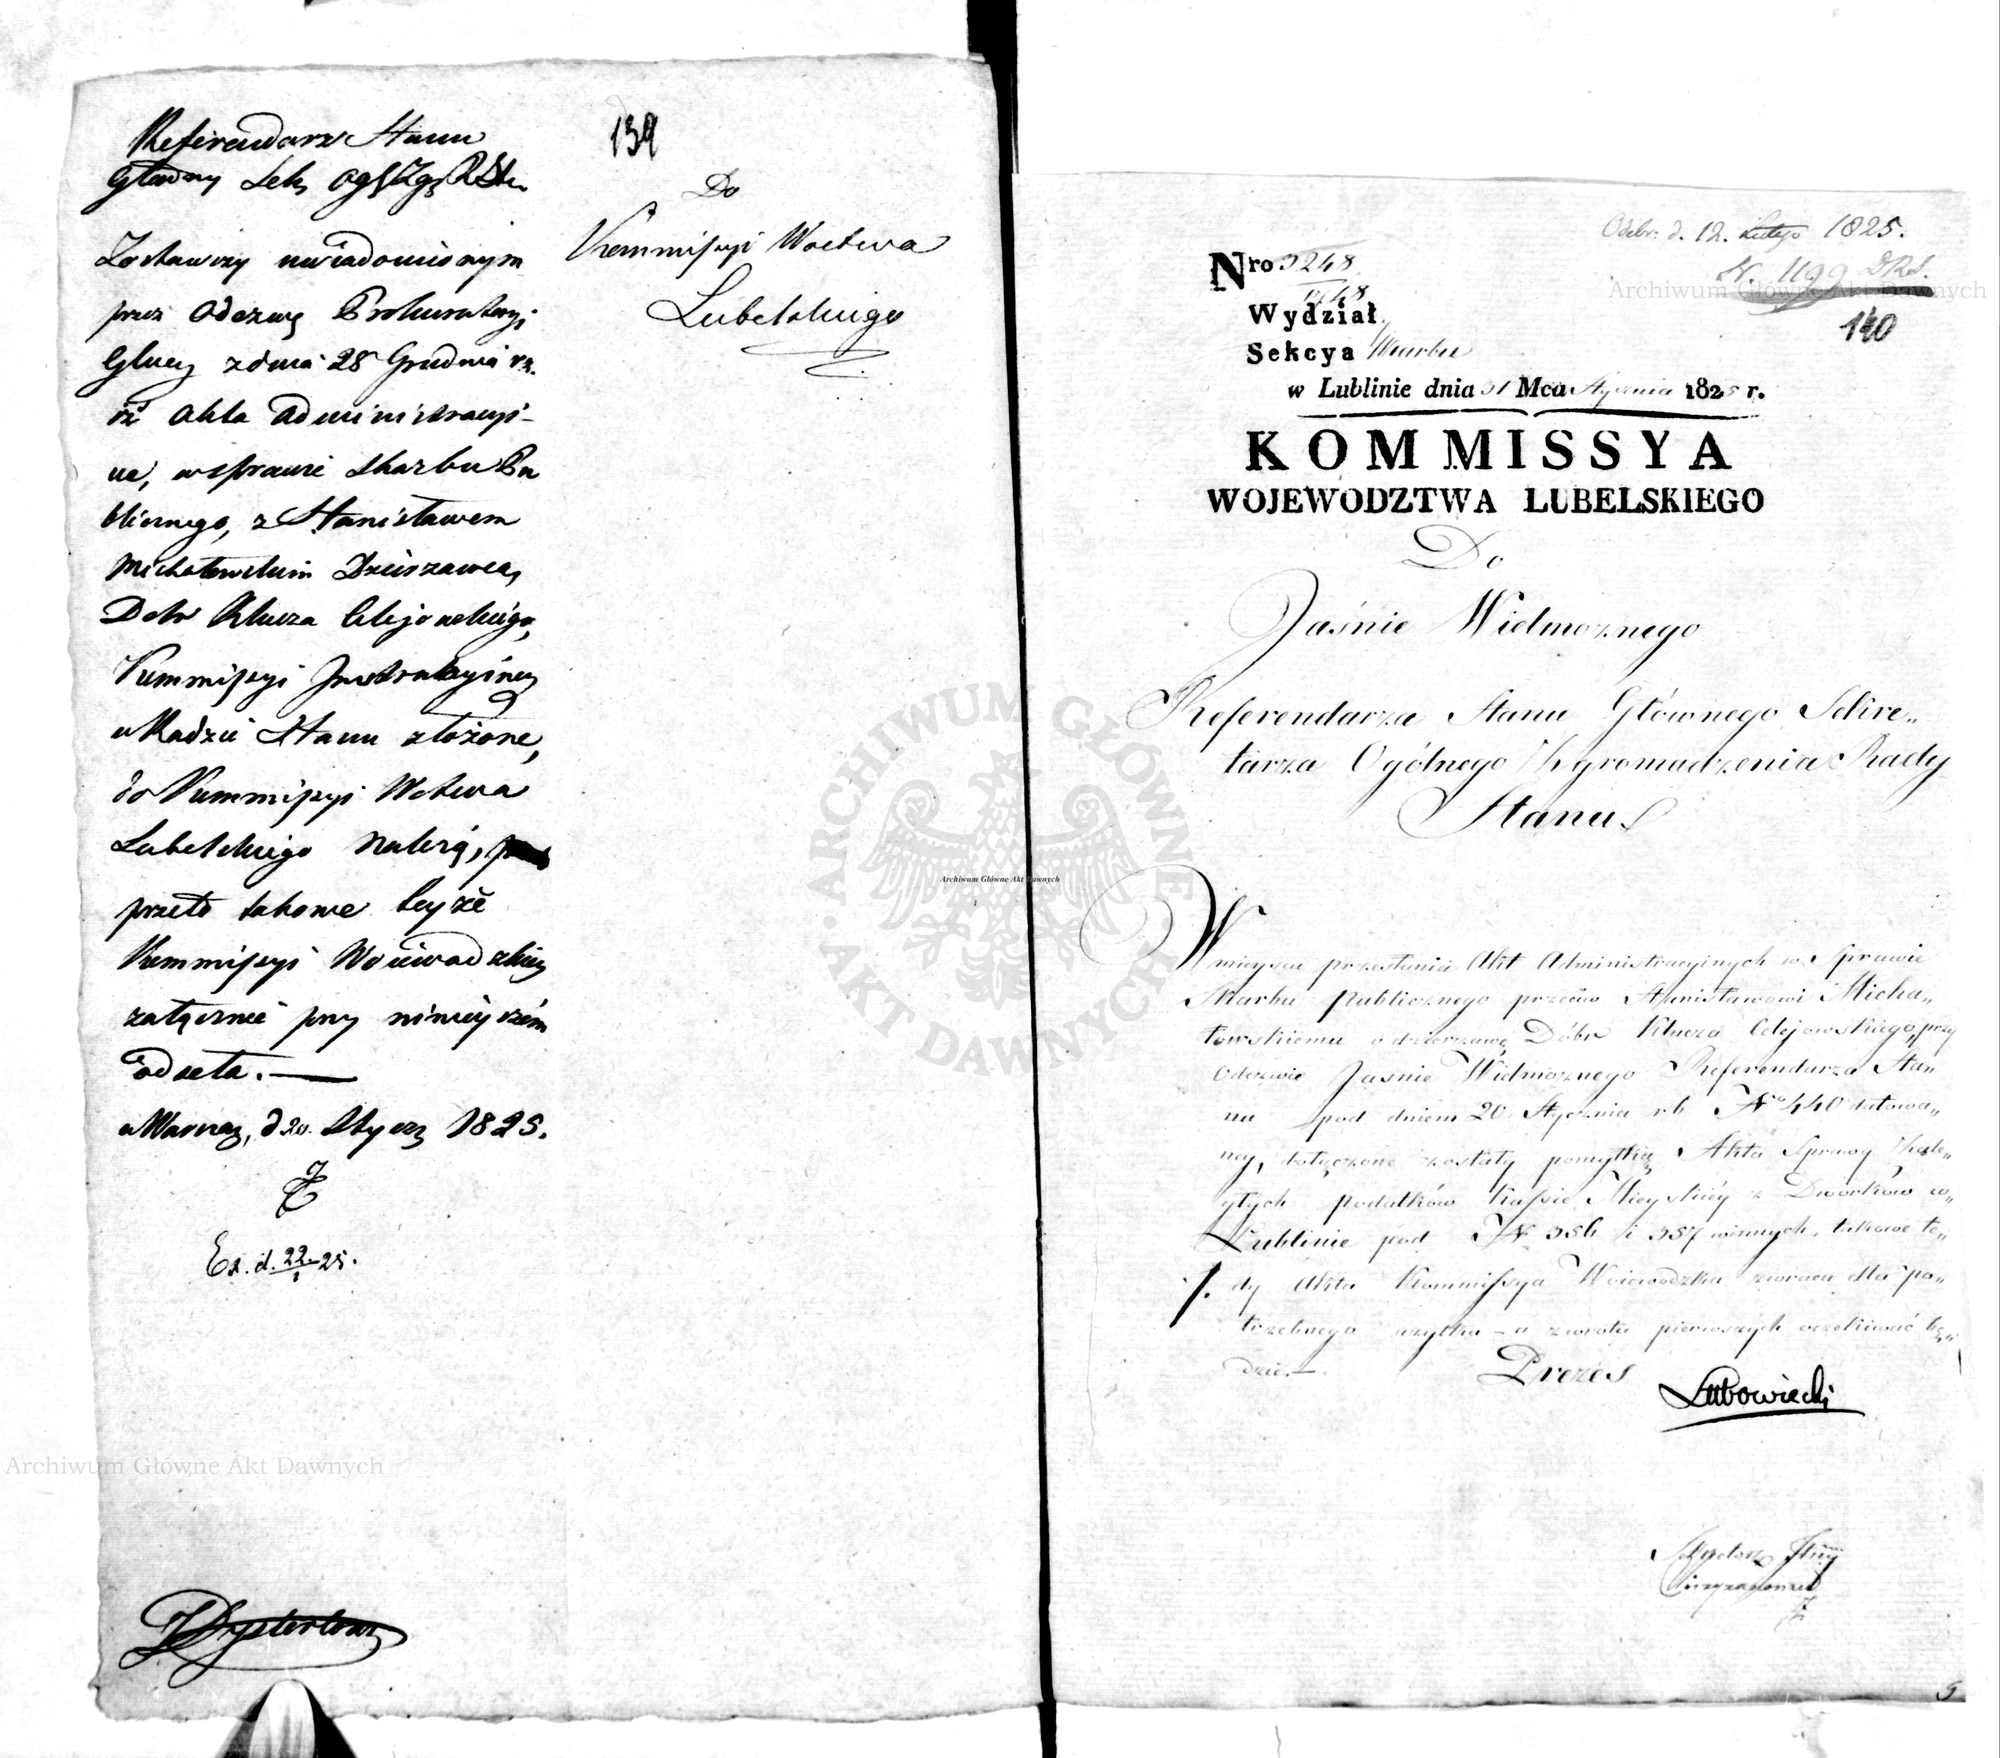 139
Referendarz Stanu
Główny Sek. Ogs Zgr RStu
Do
Kommissyi Woctwa
Lubelskiego
Zostawszy uwiadomionym
przez Odezwę Prokuratoryi
Glney z dnia 28 Grudnia r.z.
iż Akta Administracyi-
ne, w sprawie Skarbu Pu
blicznego, z Stanisławem
Michałowskim Dzierżawcą
Dobr Klucza Celejowskiego,
Kommissyi Instrukcyiney
w Radzie Stanu złożone,
do Kommissyi Wctwa
Lubelskiego należą,
przeto takowe teyże
Kommissyi Woiewodzkiey
załącznie przy ninieyszém
odseła. —
w Warszaw, d 20. Stycz 1825.
Ex. d. 22/1 25.
Odebr. d. 12. Lutego 1825.
N. 1199 DRS.
140
Nro 3248
1448
Wydział
Sekcya Skarbu
w Lublinie dnia 31 Mca Stycznia 1825 r.
KOMMISSYA
WOJEWODZTWA LUBELSKIEGO
Do
Jaśnie Wielmożnego
Referendarza Stanu Głównego Sekre„
tarza Ogólnego Zgromadzenia Rady
Stanu
W mieyscu przesłania Akt Administracyinych w Sprawie
Skarbu Publicznego przeciw Stanisławowi Micha„
łowskiemu o dzierżawę Dóbr Klucza Celejowskiego, przy
Odezwie Jaśnie Wielmożnego Referendarza Sta„
nu pod dniem 20 Stycznia r.b. No 440 datowa„
ney, dołączone zostały pomyłkię Akta Sprawy Zale„
głych podatków Kassie Mieyskiéy z Dworków w„
Lublinie pod N 356 i 357 winnych, takowe te„
1. dy Akta Kommissya Woiewodzka zwraca dla po„
trzebnego użytku – a zwrotu pierwszych oczekiwać bę„
dzie. —
Prezes
Lubowiecki
Sekretarz Jlny
5
Archiwum Główne Akt Dawnych
Archiwum Główne Akt Dawnych
Archiwum Główne Akt Dawnych
ARCHIWUM GŁÓWNE AKT DAWNYCH